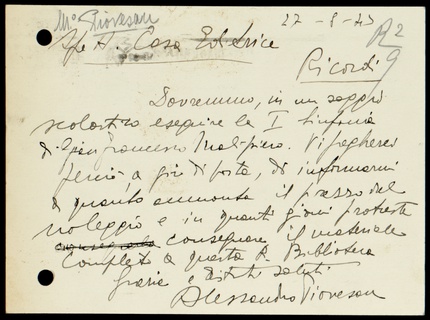 Mº Piovesan
27-8-43
R 2/9
Sp. A. Casa Editrice
Ricordi
Dovremmo, in un saggio
scolastico eseguire la I Sinfonia
di Gian Francesco Malipiero. Vi pregherei
perciò a giro di posta, di informarmi
a quanto ammonta il prezzo del
noleggio e in quanti giorni potreste
consegnare il materiale
completo a questa R. Biblioteca
Grazie e distinti saluti
Alessandro Piovesan